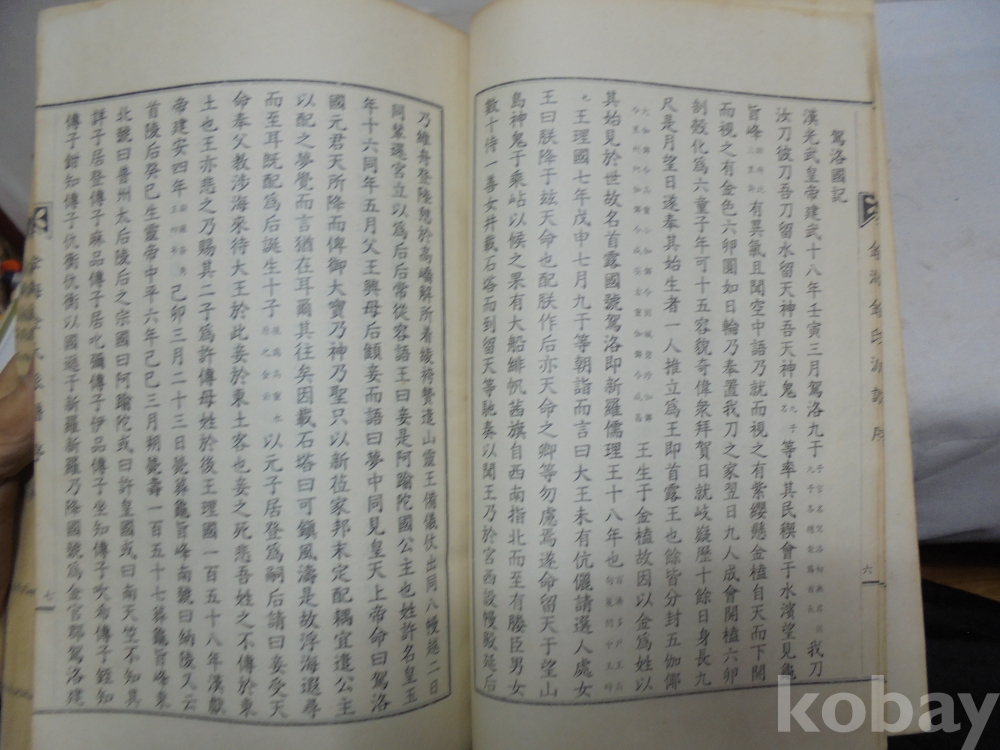 駕洛國記
漢光武皇帝建武十八年壬寅三月駕洛九干 我刀
汝刀彼刀吾刀留水留天神吾天神鬼 等率其民禊會于水濱望見龜
旨峰 有異氣且聞空中語乃就而視之有紫纓懸金榼自天而下開
而視之有金色六卵圓如日輪乃奉置我刀之家翌日九人咸會開榼六卵
剖殼化爲六童子年可十五容貌奇偉衆拜賀日就岐嶷歷十餘日身長九
尺是月望日遂奉其始生者一人推立爲王即首露王也餘皆分封五伽倻
王生于金榼故因以金爲姓以
其始見於世故名首露國號駕洛即新羅儒理王十八年也
王理國七年戊申七月九干等朝詣而言曰大王未有伉儷請選人處女
王曰朕降于玆天命也配朕作后亦天命之卿等勿慮焉遂命留天于望山
島神鬼于乘岾以候之果有大船緋帆茜旗自西南指北而至有媵臣男女
數十侍一善女井載石塔而到留天等馳奏以聞王乃於宮西設幔殿延后
乃維舟登陸憩於高嶠解所着綾袴贄遺山靈王備儀仗出同入幔越二日
同輦還宮立以爲后后常從容語王曰妾是阿踰陀國公主也姓許名皇玉
年十六同年五月父王興母后顧妾而語曰夢中同見皇天上帝命曰駕洛
國元君天所降而俾御大寶乃神乃聖只以新莅家邦末定配耦宜遣公主
以配之夢覺而言猶在耳爾其往矣因載石塔曰可鎭風濤是故浮海遐尋
而至耳既配爲后誕生十子 以元子居登爲嗣后請曰妾受天
命奉父敎涉海來待大王於此妾於東土客也妾之死悲吾姓之不傳於東
土也王亦悲之乃賜其二子爲許傳母姓於後王理國一百五十八年漢獻
帝建安四年 己卯三月二十三日薨葬龜旨峰南號曰納陵又云
首陵后癸巳生靈帝中平六年己巳三月朔薨壽一百五十七葬龜旨峰東
北號曰普州太后陵后之宗國曰阿踰陀或曰許皇國或曰南天竺不知其
詳子居登傳子麻品傳子居叱彌傳子伊品傳子坐知傳子吹希傳子銍知
傳子鉗知傳子仇衡仇衡以國遜于新羅新羅乃降國號爲金官郡駕洛建
六
七
kobay